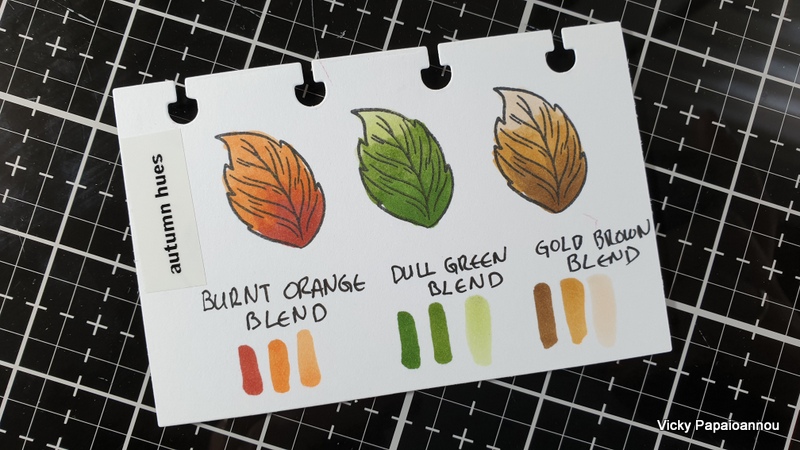 autumn hues
BURNT ORANGE
BLEND
DULL GREEN
BLEND
GOLD BROWN
BLEND
Vicky Papaioannou